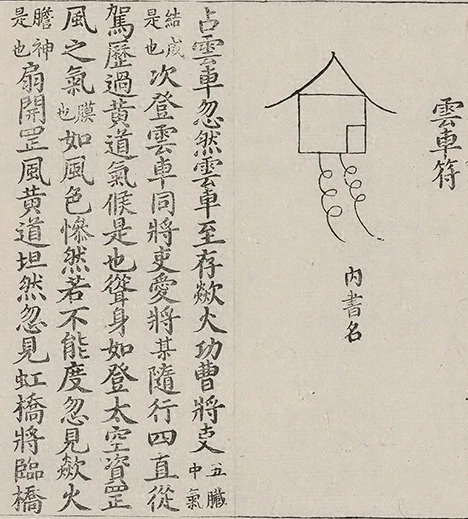 雲車符
內書名
占雲車忽然雲車至存歘火功曹將吏五臟中氣
結成是也次登雲車同將吏愛將某隨行四直從
駕歷過黃道氣候是也聳身如登太空資罡
風之氣膜也如風色慘然若不能度忽見歘火
膽神是也扇開罡風黃道坦然忽見虹橋將臨橋